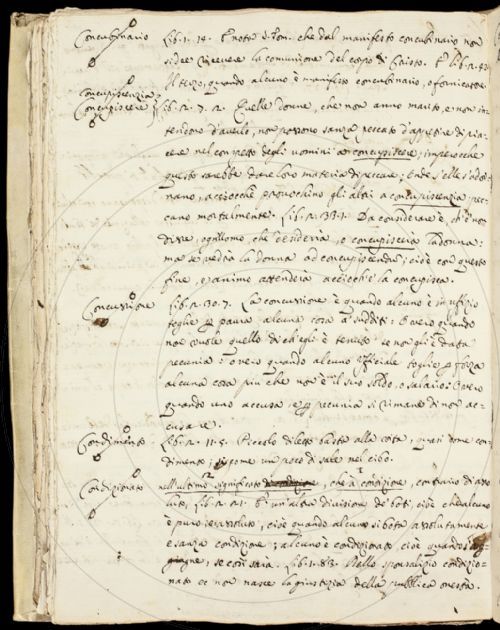 Concubinario Lib. 1. 14. E' nota d. Son. che dal manifesto concubinario non
si dee ricevere la comunione del corpo di Cristo. E' lib. 2. 42.
Il terzo, quando alcuno è manifesto concubinario, o fornicatore.
Concupiscenzia
Concupiscere Lib. 2. 7. 2. Quelle donne, che non anno marito, e non in-
tendono d'averlo, non possono sanza peccato d'appetire di pia-
cere nel cospetto degli uomini a concupiscere, imperocche
questo sarebbe dare loro materia di peccare; Onde s'elle s'ador-
nano, acciocchè provochino gli altri a concupiscenzia pec-
cano mortalmente. Lib. 2. 33. 1. Da considerare è, ch'e' non
disse, ogni uomo, che desidera, o concupiscerà la donna:
ma se vedrà la donna ad concupiscendum; cioè con questo
fine, e animo attenderà acciocch'e' la concupisca.
Concussione Lib. 2. 30. 7. La concussione è quando alcuno è in ufizio
toglie p paura alcuna cosa a' sudditi: O vero quando
non vuole quello di ch'egli è tenuto se non gli è data
pecunia: o vero quando alcuno officiale toglie p forza
alcuna cosa più che non è il suo soldo, o salario: O vero
quando uno accusa, e p pecunia si rimane di non ac-
cusare.
Condimento Lib. 2. 11. 5. Piccolo diletto basta alla vita, quasi come con-
dimento, siccome un poco di sale nel cibo.
Condizionato nell'ultimo significato, che à condizione, contrario di asso-
luto, Lib. 2. 21. E' un'altra divisione di boti, cioè che alcuno
è puro e assoluto, cioè quando alcuno si bota assolutamente
e sanza condizione; alcuno è condizionato cioè quando s'ag-
giugne, se così sarà. Lib. 1. 83. Dallo sponsalizio condizio-
nato ec non nasce la giustizia della pubblica onestà.